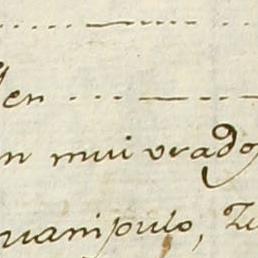 en
n mui vrado
uanipulo, Zu